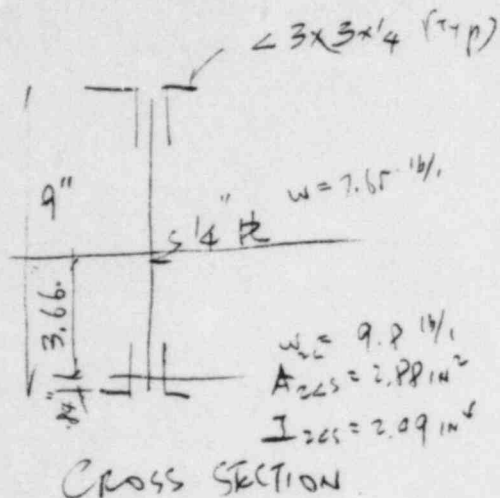 ∠ 3 x 3 x 1/4 (Typ)
9"
w = 7.65 lb/'
1/4" ℞
3.66
.84"
w₂∠ = 9.8 lb/'
A₂∠s = 2.88 IN²
I₂∠s = 2.09 IN⁴
CROSS SECTION